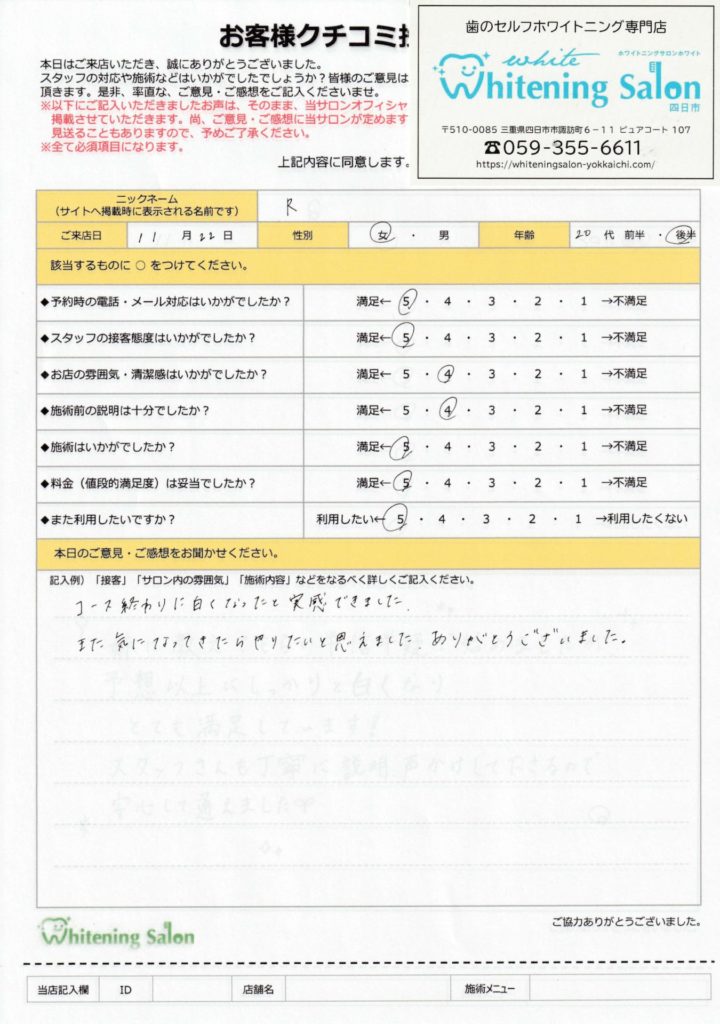 お客様クチコミ
本日はご来店いただき、誠にありがとうございました。
スタッフの対応や施術などはいかがでしたでしょうか？皆様のご意見は
頂きます。是非、率直な、ご意見・ご感想をご記入くださいませ。
※以下にご記入いただきましたお声は、そのまま、当サロンオフィシャ
掲載させていただきます。尚、ご意見・ご感想に当サロンが定めます
見送ることもありますので、予めご了承ください。
※全て必須項目になります。
上記内容に同意します。
歯のセルフホワイトニング専門店
white
ホワイトニングサロンホワイト
Whitening Salon
四日市
〒510-0085 三重県四日市市諏訪町6－11 ピュアコート 107
☎059-355-6611
https://whiteningsalon-yokkaichi.com/
ニックネーム
（サイトへ掲載時に表示される名前です） R
ご来店日 11 月 22 日 性別 女 ・ 男 年齢 20 代 前半 ・ 後半
該当するものに ○ をつけてください。
◆予約時の電話・メール対応はいかがでしたか？ 満足← 5 ・ 4 ・ 3 ・ 2 ・ 1 →不満足
◆スタッフの接客態度はいかがでしたか？ 満足← 5 ・ 4 ・ 3 ・ 2 ・ 1 →不満足
◆お店の雰囲気・清潔感はいかがでしたか？ 満足← 5 ・ 4 ・ 3 ・ 2 ・ 1 →不満足
◆施術前の説明は十分でしたか？ 満足← 5 ・ 4 ・ 3 ・ 2 ・ 1 →不満足
◆施術はいかがでしたか？ 満足← 5 ・ 4 ・ 3 ・ 2 ・ 1 →不満足
◆料金（値段的満足度）は妥当でしたか？ 満足← 5 ・ 4 ・ 3 ・ 2 ・ 1 →不満足
◆また利用したいですか？ 利用したい← 5 ・ 4 ・ 3 ・ 2 ・ 1 →利用したくない
本日のご意見・ご感想をお聞かせください。
記入例）「接客」「サロン内の雰囲気」「施術内容」などをなるべく詳しくご記入ください。
コース終わりに白くなったと実感できました.
また気になってきたらやりたいと思えました.ありがとうございました。
予想以上にしっかりと白くなり
とても満足しています!
スタッフさんも丁寧に説明 声かけして下さるので
安心して通えました
Whitening Salon
ご協力ありがとうございました。
当店記入欄 ID 店舗名 施術メニュー